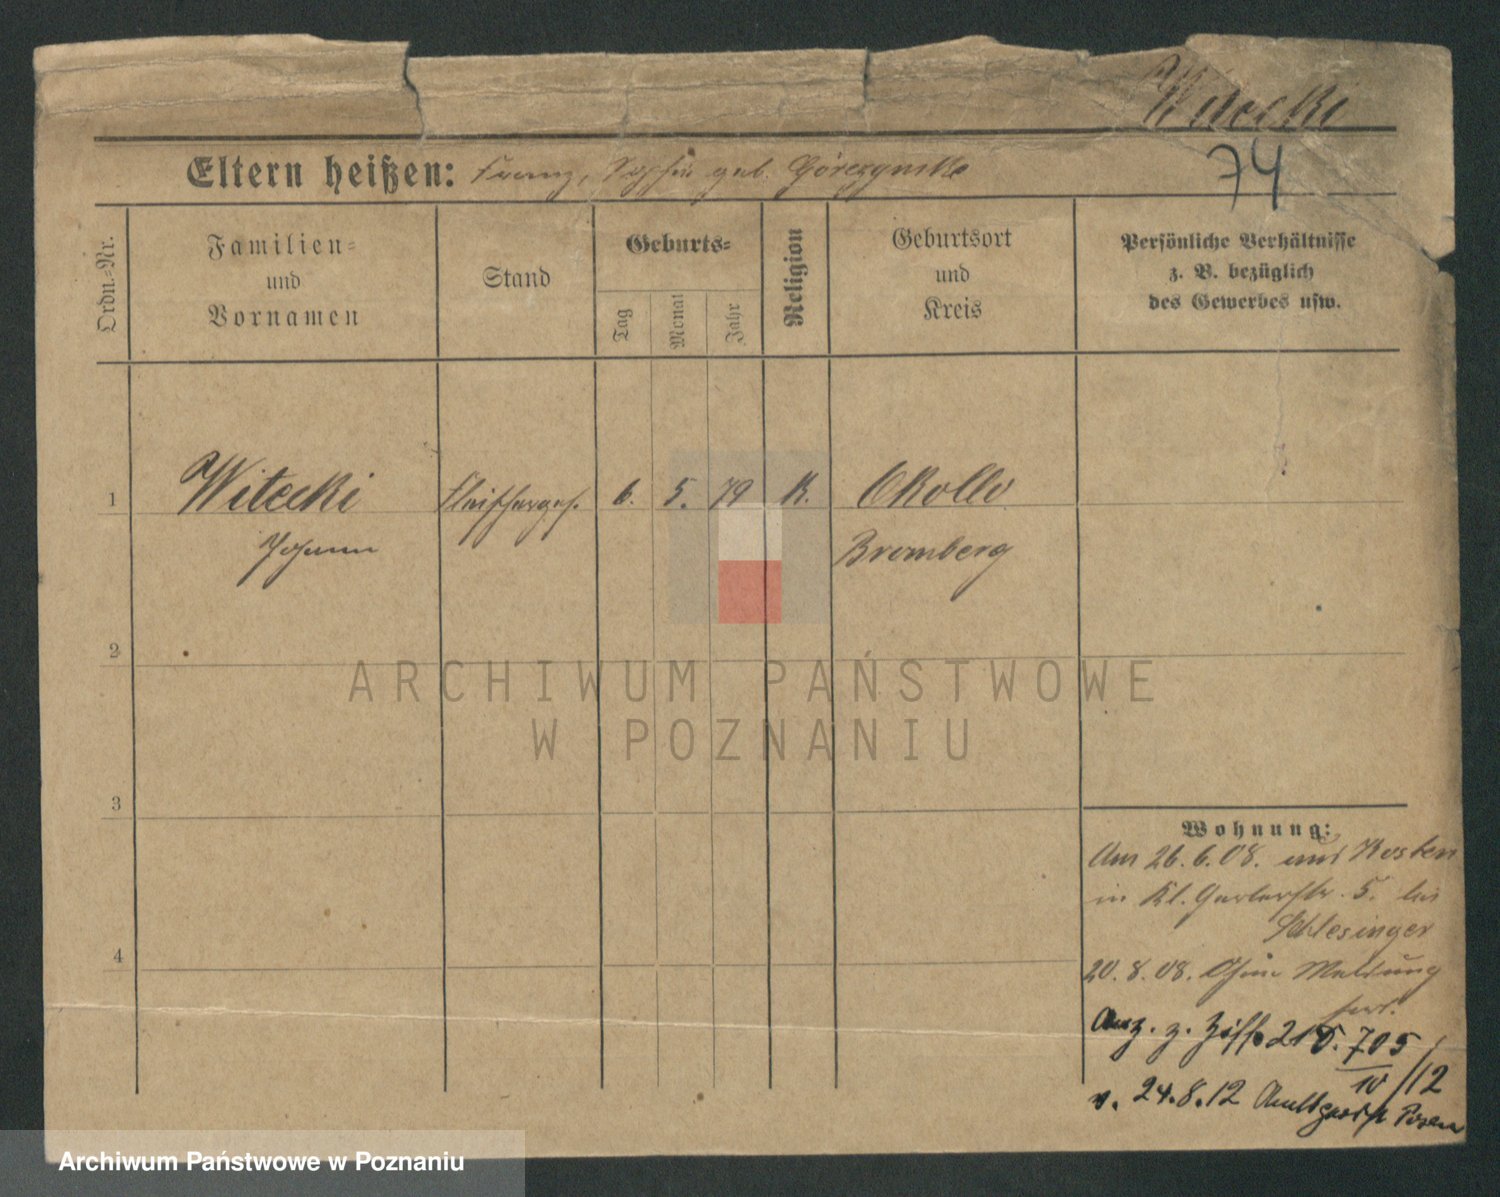 Witecki
74
Eltern heißen: Franz, Sophie geb. Górczynska
Ordn.=Nr.
Familien=
und
Vornamen
Stand
Geburts=
Tag
Monat
Jahr
Religion
Geburtsort
und
Kreis
Persönliche Verhältnisse
z. B. bezüglich
des Gewerbes usw.
1 Witecki Fleischerges. 6. 5. 79 K. Okollo
Johann Bromberg
2
3
4
Wohnung:
Am 26.6.08. aus Kosten
in Kl. Gerberstr. 5. bei
Schlesinger
20.8.08. Ohne Meldung
fort.
Anz. z. Ziff. 705
10/12
v. 24.8.12 Amtsgericht Posen
ARCHIWUM PAŃSTWOWE
W POZNANIU
Archiwum Państwowe w Poznaniu